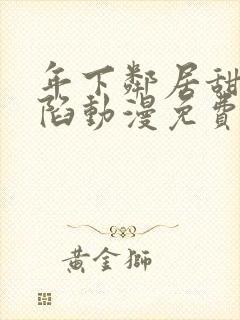 年下鄰居甜
陷動漫免費
黃金獅